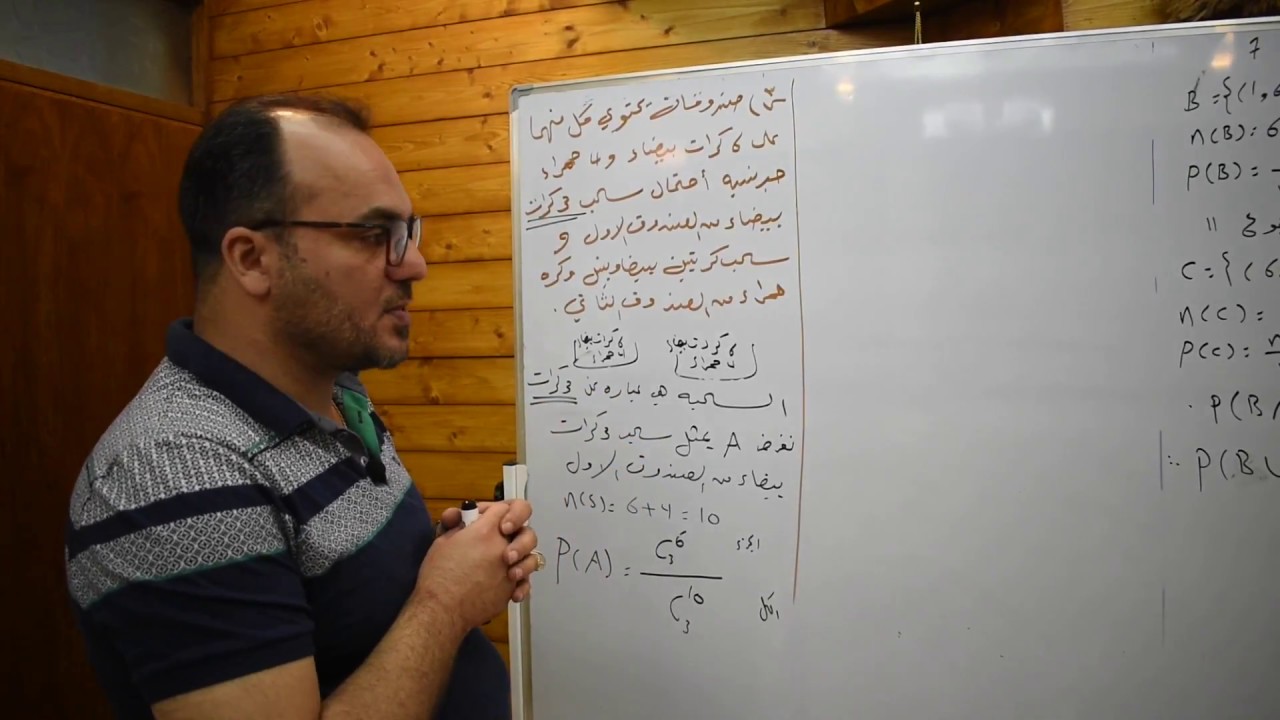 س٣) صندوقان يحتوي كل منهما
على 6 كرات بيضاء و 4 حمراء
جد نسبة أحتمال سحب 3 كرات
بيضاء من الصندوق الاول و
سحب كرتين بيضاوين وكره
حمراء من الصندوق الثاني .
6 كرات بيضاء
4 حمراء
6 كرات بيضاء
4 حمراء
السحبه هي عباره عن 3 كرات
نفرض A يمثل سحب 3 كرات
بيضاء من الصندوق الاول
n(s) = 6+4 = 10
P(A) = C₃⁶ / C₃¹⁰
الجزء
الكل
7
B = {(1, 6
n(B) = 6
P(B) =
C = {(6
n(C) =
P(C) = n
P(B
∴ P(B ∪